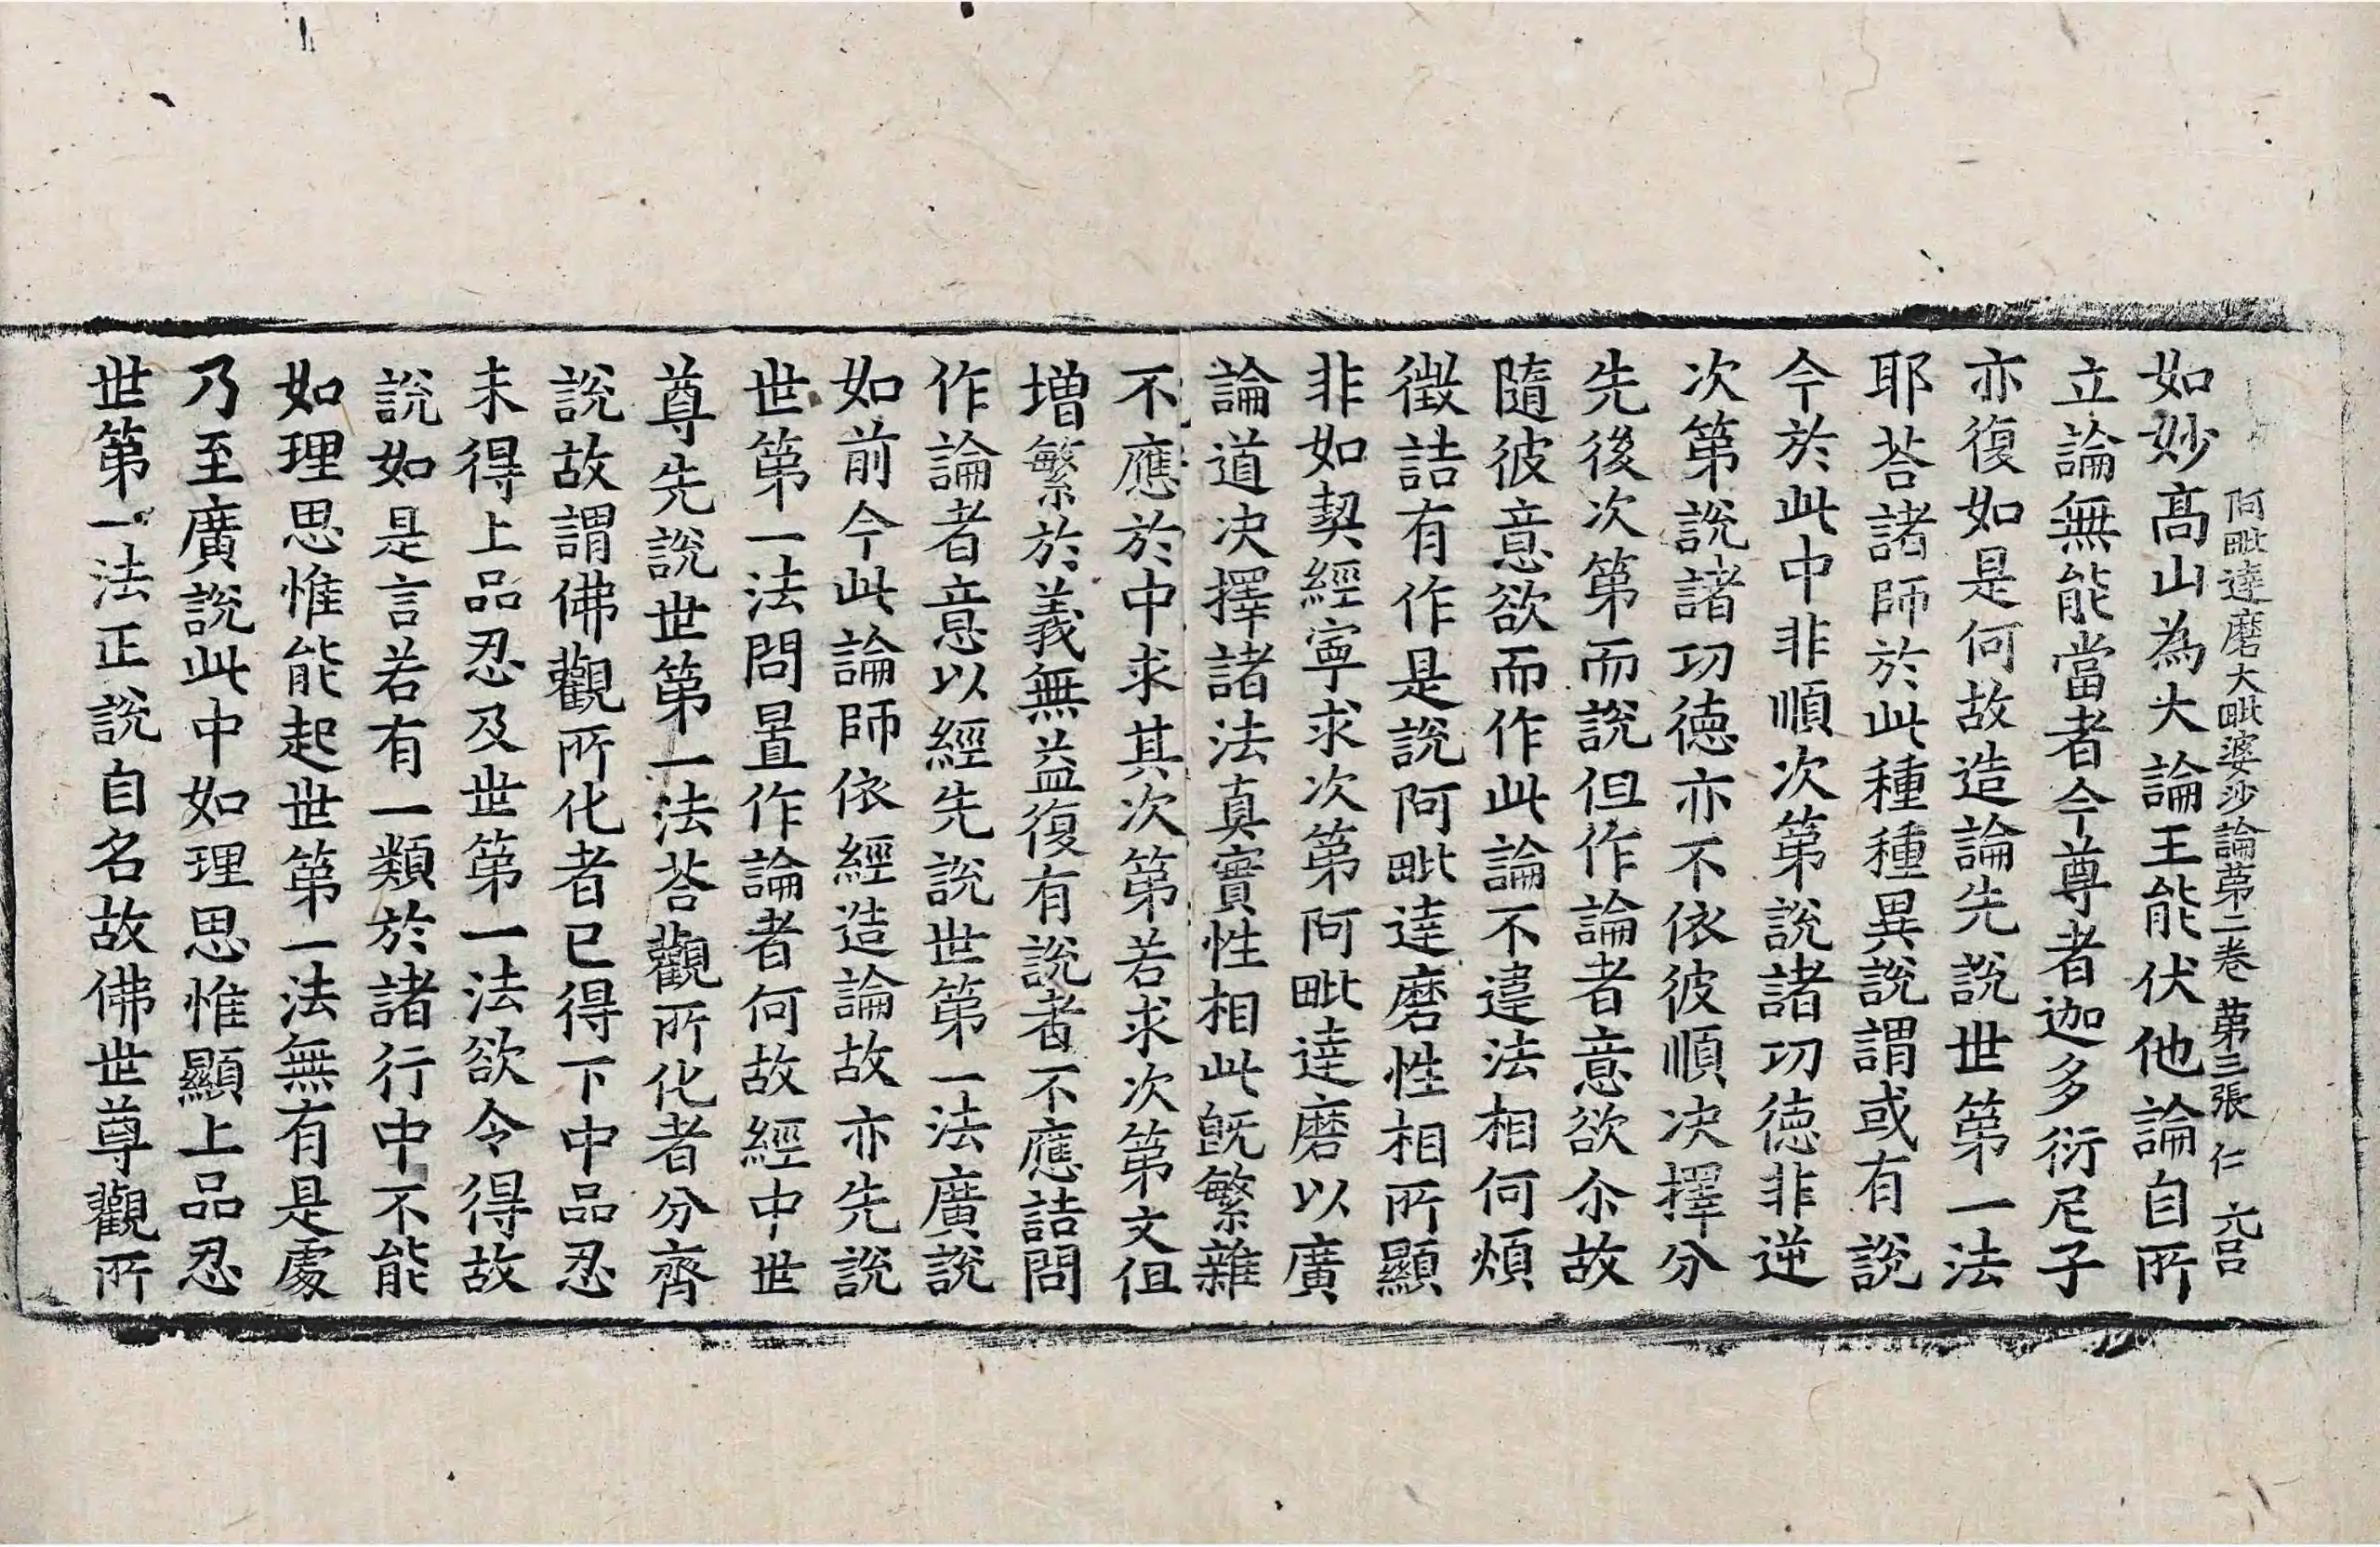 阿毗達磨大毗婆沙論第二卷 第三張 仁
如妙高山為大論王能伏他論自所
立論無能當者今尊者迦多衍尼子
亦復如是何故造論先說世第一法
耶荅諸師於此種種異說謂或有說
今於此中非順次第說諸功德非逆
次第說諸功德亦不依彼順決擇分
先後次第而說但作論者意欲尒故
隨彼意欲而作此論不違法相何煩
徵詰有作是說阿毗達磨性相所顯
非如契經寧求次第阿毗達磨以廣
論道決擇諸法真實性相此旣繁雜
不應於中求其次第若求次第文但
增繁於義無益復有說者不應詰問
作論者意以經先說世第一法廣說
如前今此論師依經造論故亦先說
世第一法問置作論者何故經中世
尊先說世第一法荅觀所化者分齊
說故謂佛觀所化者已得下中品忍
未得上品忍及世第一法欲令得故
說如是言若有一類於諸行中不能
如理思惟能起世第一法無有是處
乃至廣說此中如理思惟顯上品忍
世第一法正說自名故佛世尊觀所